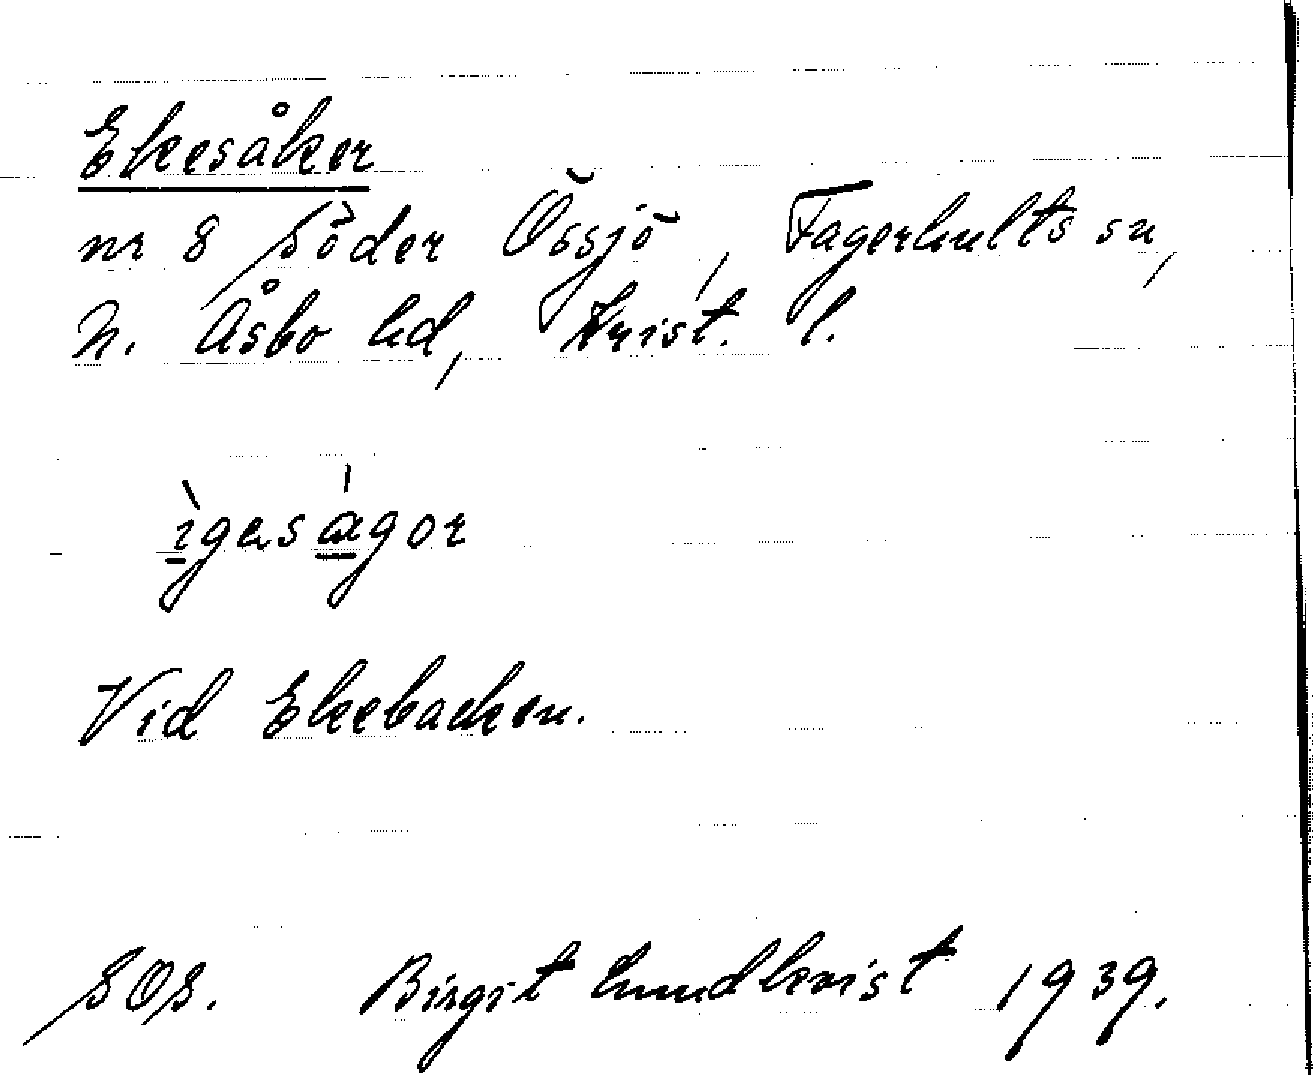 Ekesåker
nr 8 Söder Össjö, Fagerhults sn,
N. Åsbo hd, Krist. l.
ìgaságor
Vid Ekebacken.
SOS. Birgit Lundkvist 1939.